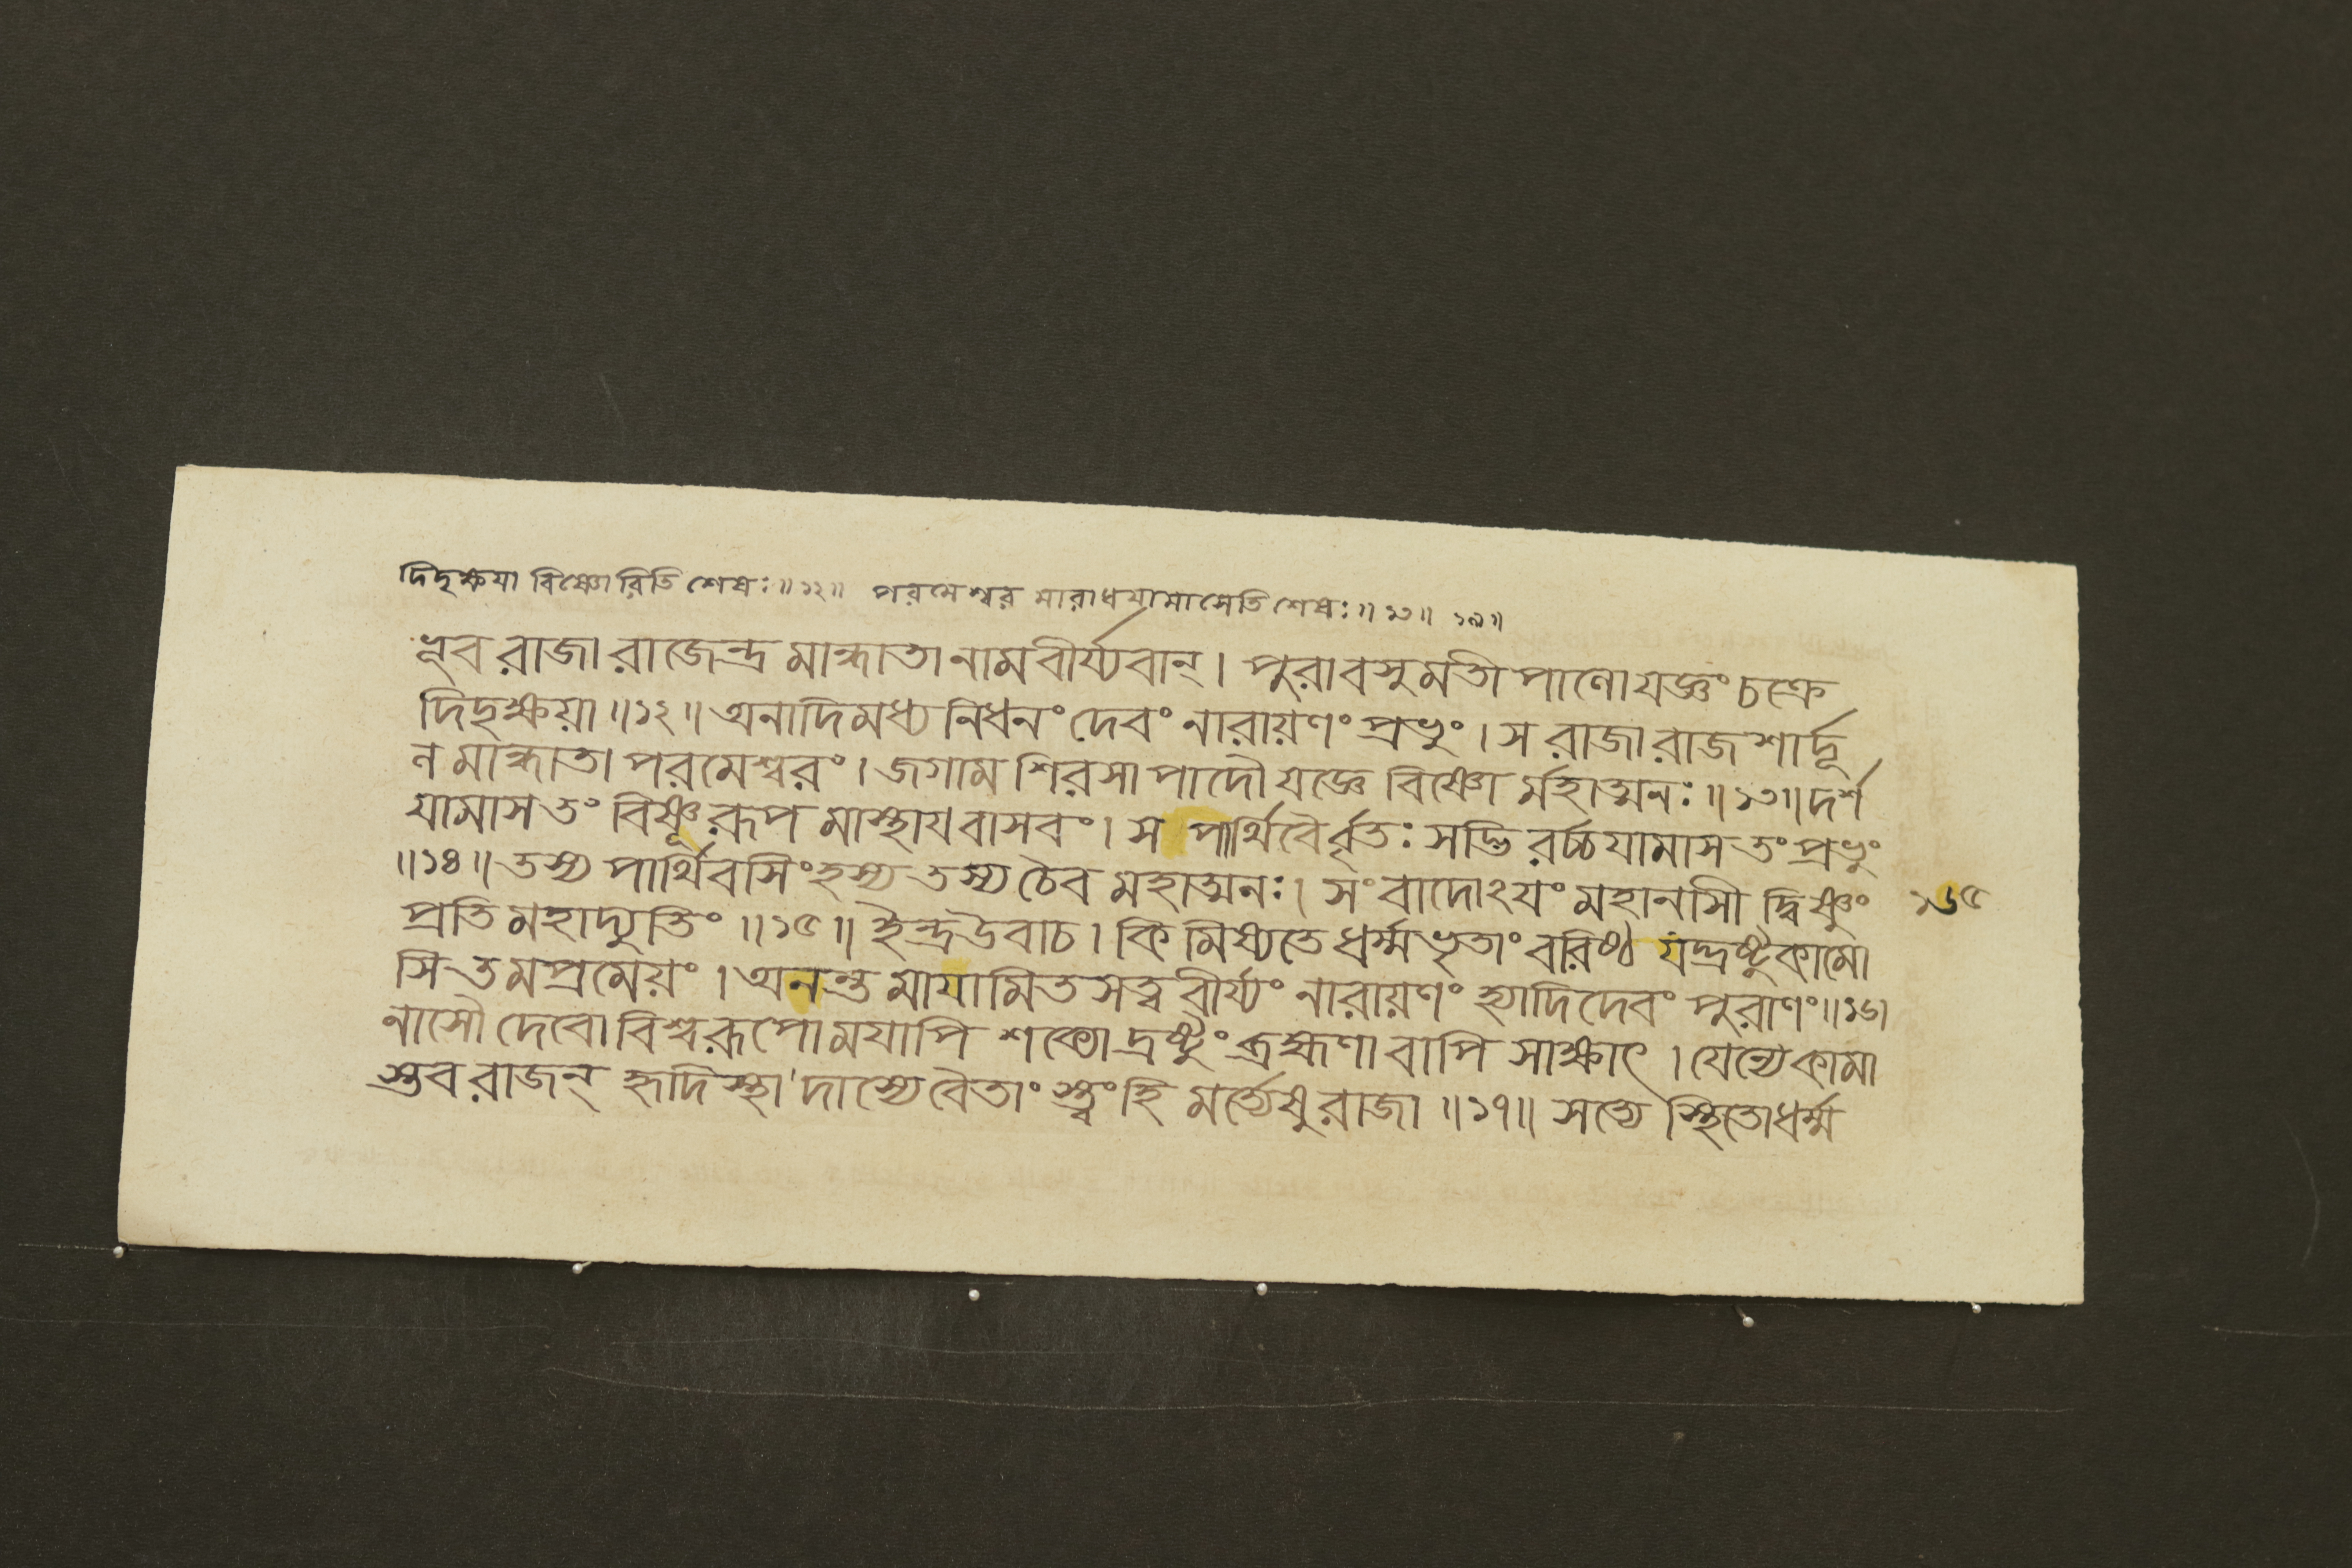 দিদৃক্ষয়া বিষ্ণোরিতি শেষঃ॥১২॥ পরমেশ্বর মারাধযামাসেতি শেষঃ॥১৩॥ ১৪॥
ভূব রাজা রাজেন্দ্র মান্ধাতা নাম বীর্য্যবান্। পুরা বসুমতী পাণো যজ্ঞং চক্রে
দিদৃক্ষয়া॥১২॥ অনাদিমধ্য নিধনং দেবং নারায়ণং প্রভুং। স রাজা রাজ শার্দ্দূ
ল মান্ধাতা পরমেশ্বরং। জগাম শিরসা পাদৌ যজ্ঞে বিষ্ণো র্মহাত্মনঃ॥১৩॥ দর্শ
যামাস তং বিষ্ণূ রূপ মাস্থায বাসবং। স পার্থিবৈর্বৃতঃ সদ্ভি রর্চ্চযামাস তং প্রভুং
॥১৪॥ তস্য পার্থিবসিংহস্য তস্য চৈব মহাত্মনঃ। সংবাদোঽযং মহানসী দ্বিষ্ণুং
১৬৫
প্রতি মহাদ্যুতিং॥১৫॥ ইন্দ্রউবাচ। কি মিষ্যতে ধর্ম্মভৃতাং বরিষ্ঠ যদ্দ্রষ্টুকামো
সি তমপ্রমেয়ং। অনন্ত মাযামিত সত্ব বীর্য্যং নারায়ণং হ্যাদিদেবং পুরাণং॥১৬।
নাসৌ দেবো বিশ্বরূপো মযাপি শক্যো দ্রষ্টুং ব্রহ্মণা বাপি সাক্ষাৎ। যেন্যে কামা
স্তব রাজন্ হৃদিস্থা দাস্যে বৈতাং স্ত্বং হি মর্ত্যেষু রাজা॥১৭॥ সত্যে স্থিতো ধর্ম্ম